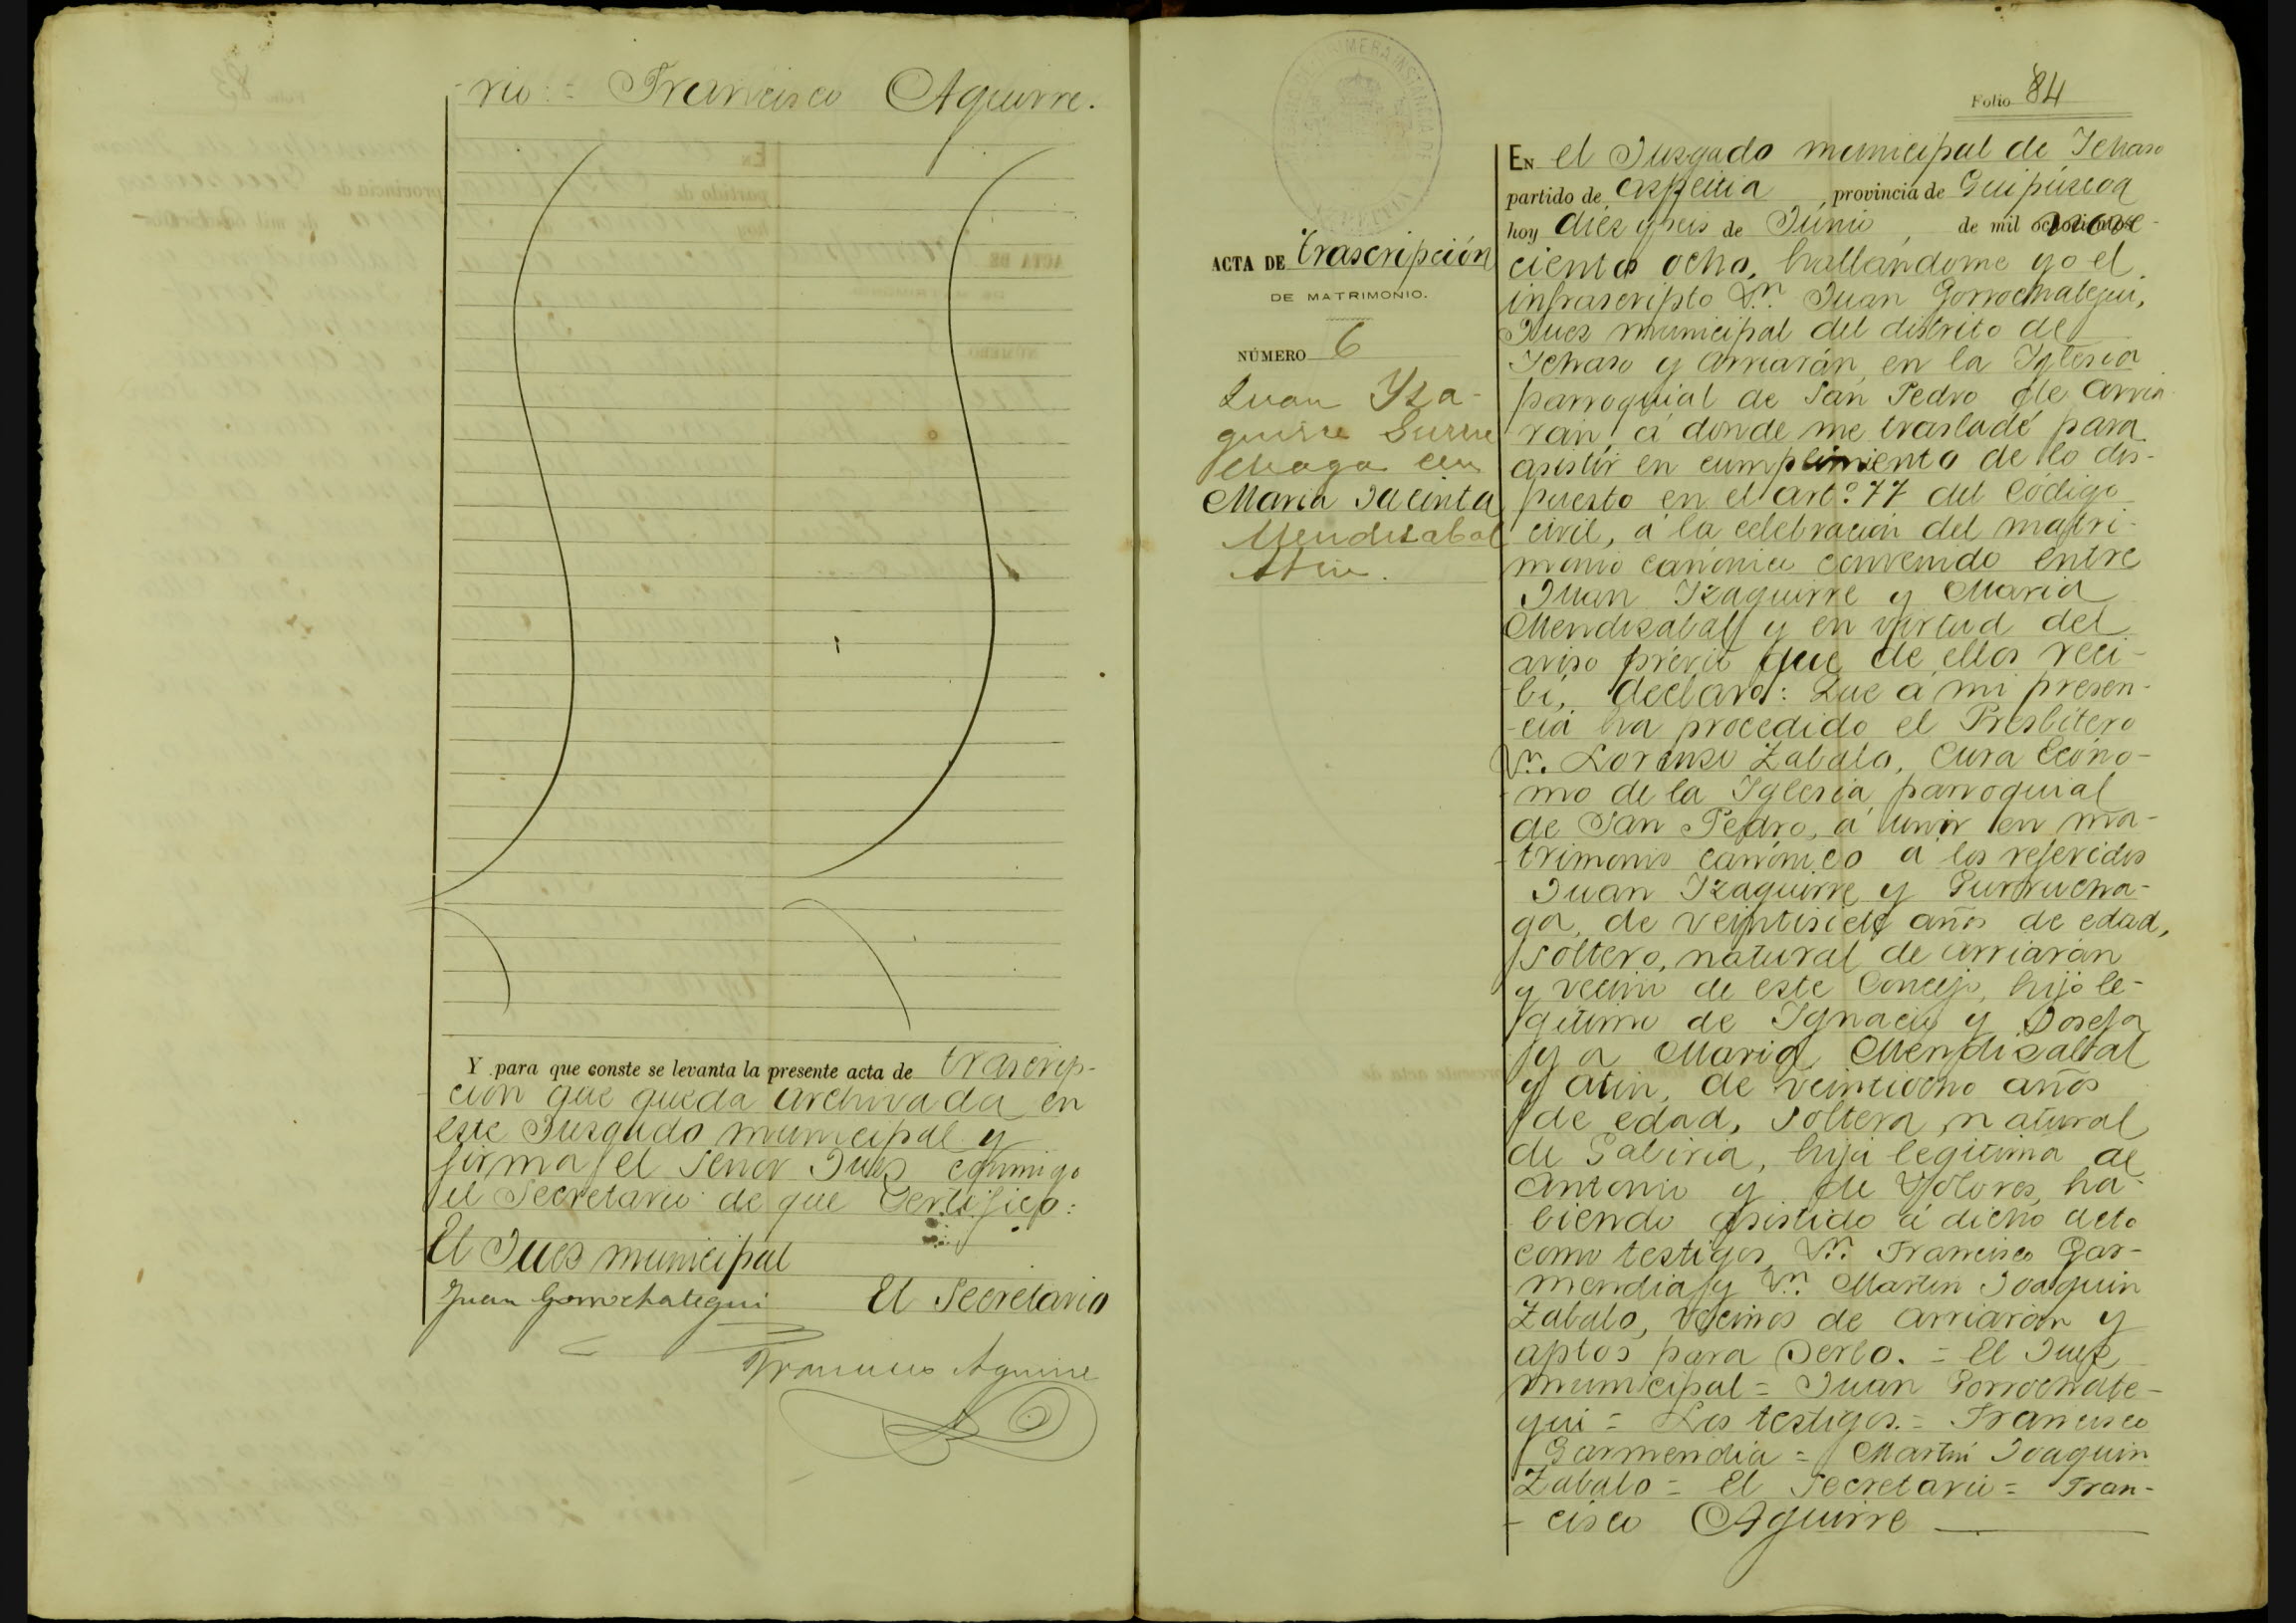 rio = Francisco Aguirre.
Y para que conste se levanta la presente acta de trascrip-
ción que queda archivada en
este Juzgado municipal y
firma el Señor Juez conmigo
el Secretario de que Certifico:
El Juez municipal
Juan Gorrochategui
El Secretario
Francisco Aguirre
Folio 84
ACTA DE trascripción
DE MATRIMONIO.
NÚMERO 6
Juan Yza-
guirre Gurru
chaga con
Maria Jacinta
Mendizabal
Atin.
EN el Juzgado municipal de Ichaso
partido de Azpeitia, provincia de Guipúzcoa
hoy diez y seis de Junio, de mil nove-
cientos ocho, hallándome yo el
infrascripto Dn. Juan Gorrochategui,
Juez municipal del distrito de
Ichaso y Arriarán, en la Iglesia
parroquial de San Pedro de Arria-
rán, á donde me trasladé para
asistir en cumplimiento de lo dis-
puesto en el artº. 77 del Código
civil, á la celebración del matri-
monio canónico convenido entre
Juan Izaguirre y Maria
Mendizabal y en virtud del
aviso prévio que de ellos reci-
bí, declaro: Que á mi presen-
-cia ha procedido el Presbítero
Dn. Lorenzo Zabalo, Cura Ecóno-
-mo de la Iglesia parroquial
de San Pedro, á unir en ma-
-trimonio canónico á los referidos
Juan Izaguirre y Gurrucha-
ga, de veintisiete años de edad,
soltero, natural de Arriarán
y vecino de este Concejo, hijo le-
gítimo de Ignacio y Josefa
y a Maria Mendizabal
y Atin, de veintiocho años
de edad, soltera, natural
de Gabiria, hija legitima de
Antonio y de Dolores, ha-
biendo asistido á dicho acto
como testigos, Dn. Francisco Gar-
mendia y Dn. Martin Joaquin
Zabalo, vecinos de Arriarán y
aptos para serlo. = El Juez
municipal = Juan Gorrochate-
gui = Los testigos. = Francisco
Garmendia = Martin Joaquin
Zabalo = El Secretario = Fran-
- cisco Aguirre